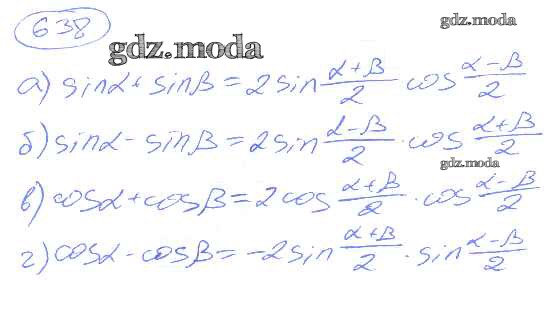 638
gdz.moda
gdz.moda
а) sinα + sinβ = 2 sin (α+β)/2 cos (α−β)/2
б) sinα − sinβ = 2 sin (α−β)/2 · cos (α+β)/2
gdz.moda
в) cosα + cosβ = 2 cos (α+β)/2 · cos (α−β)/2
г) cosα − cosβ = −2 sin (α+β)/2 · sin (α−β)/2